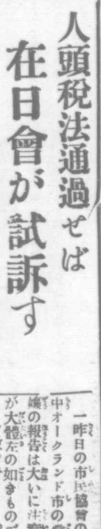 人頭税法通過せば
在日會が試訴す
一昨日の市民協會の
中オークランド市の
端の報告は大いに注
が大體左の如きもの